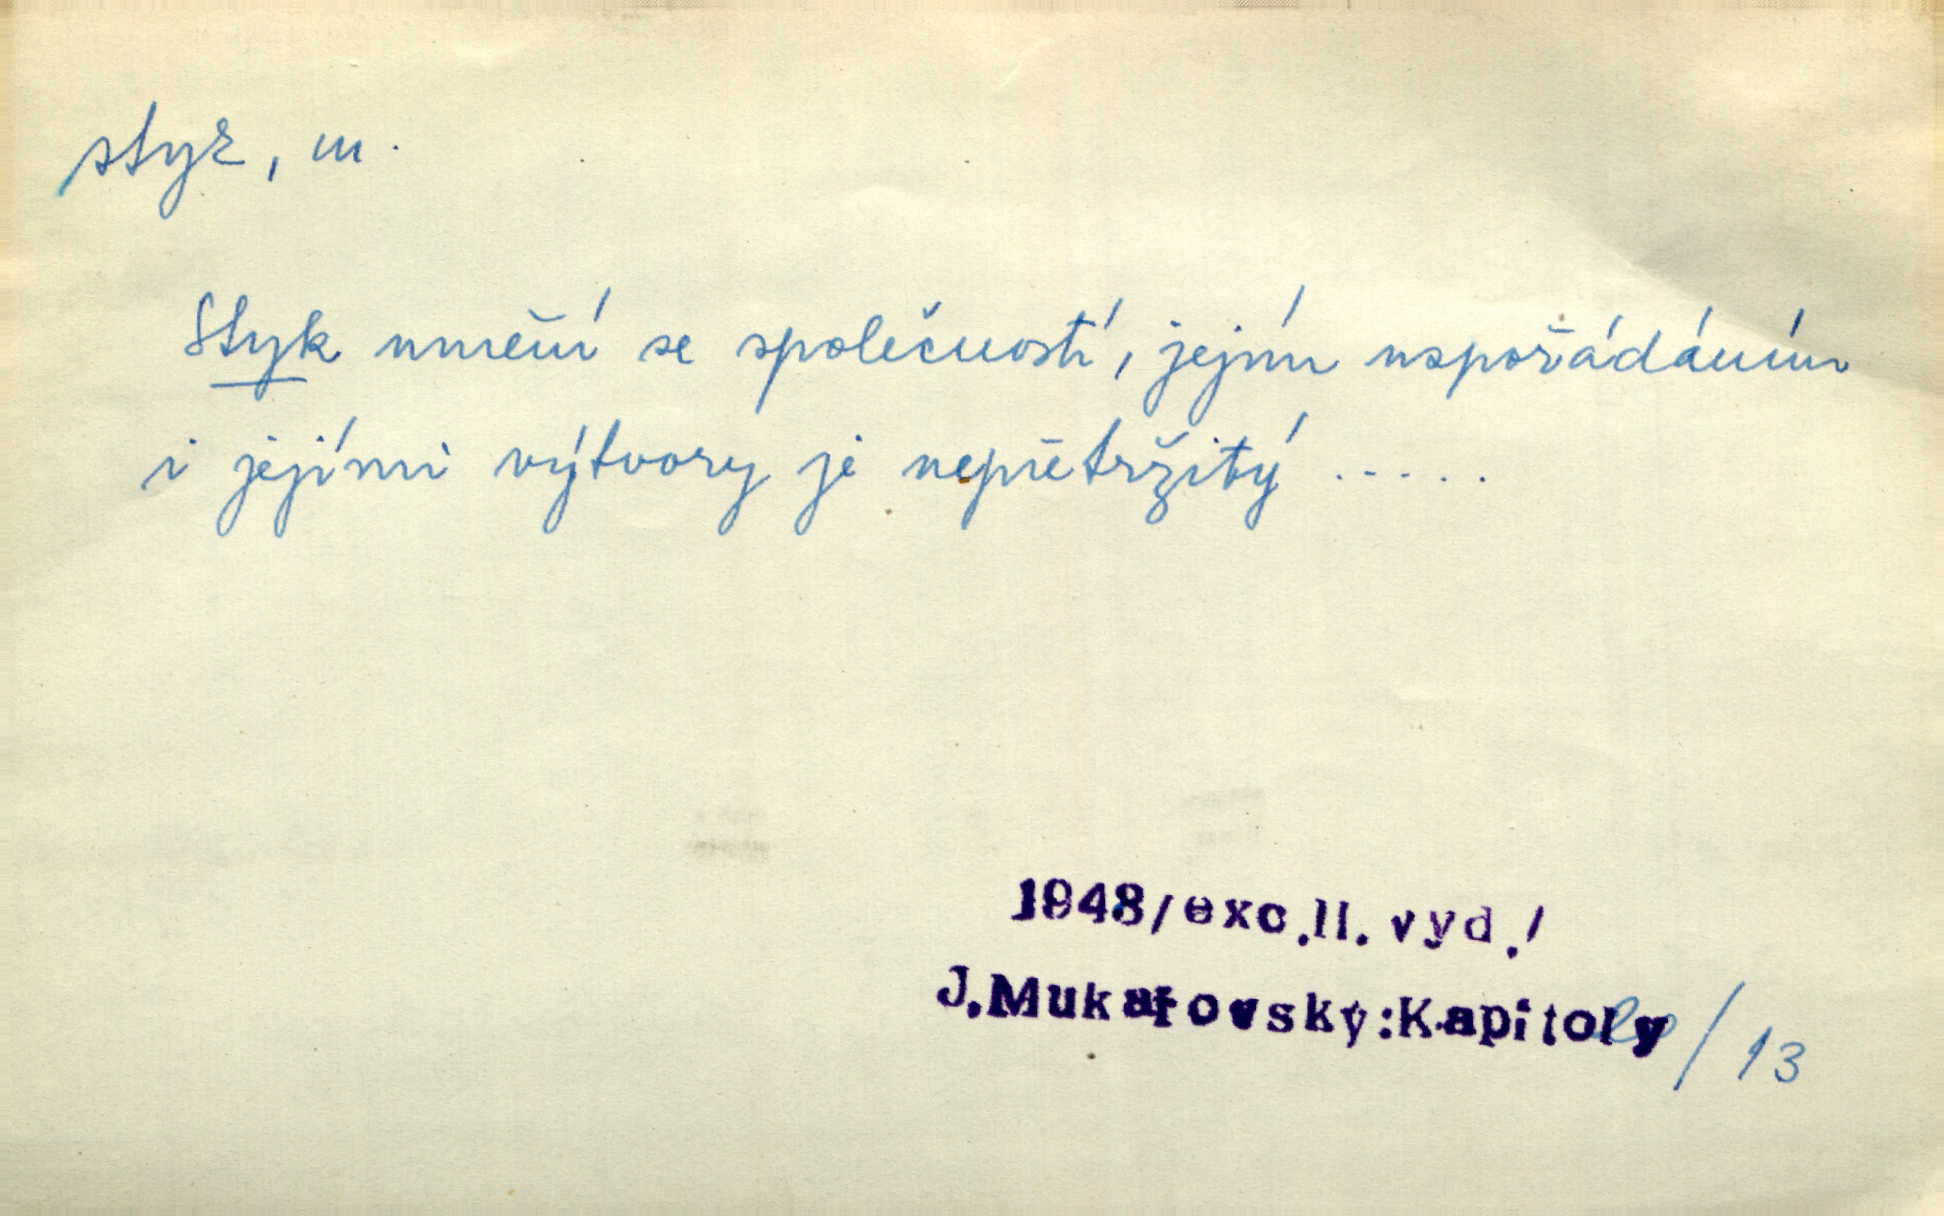 styk, m.
Styk umění se společností, jejím uspořádáním
i jejími výtvory je nepřetržitý .....
1948/exc.II. vyd./
J.Mukařovský:Kapitoly /13